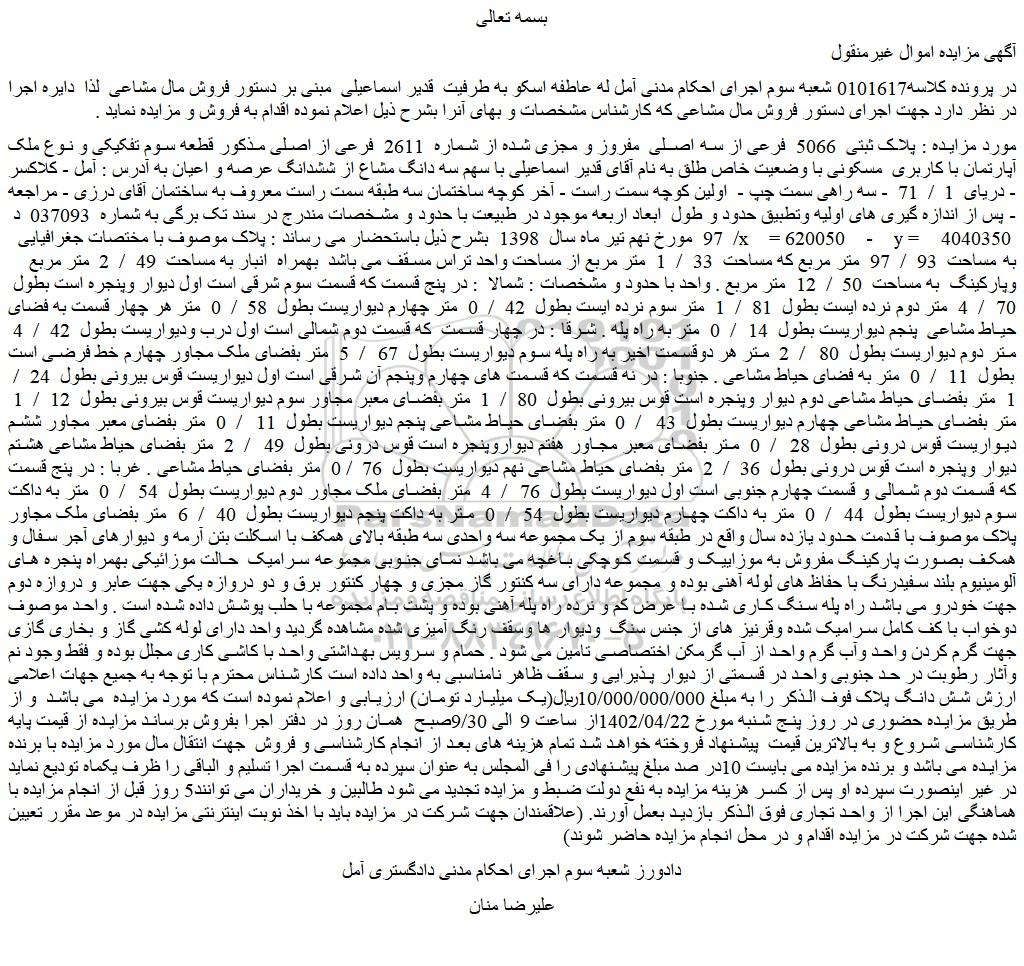 بسمه تعالی
آگهی مزایده اموال غیرمنقول
در پرونده کلاسه0101617 شعبه سوم اجرای احکام مدنی آمل له عاطفه اسکو به طرفیت قدیر اسماعیلی مبنی بر دستور فروش مال مشاعی لذا دایره اجرا
در نظر دارد جهت اجرای دستور فروش مال مشاعی که کارشناس مشخصات و بهای آنرا بشرح ذیل اعلام نموده اقدام به فروش و مزایده نماید .
مورد مزایده : پلاک ثبتی 5066 فرعی از سه اصلی مفروز و مجزی شده از شماره 2611 فرعی از اصلی مذکور قطعه سوم تفکیکی و نوع ملک
آپارتمان با کاربری مسکونی با وضعیت خاص طلق به نام آقای قدیر اسماعیلی با سهم سه دانگ مشاع از ششدانگ عرصه و اعیان به آدرس : آمل - کلاکسر
- دریای 1 / 71 - سه راهی سمت چپ - اولین کوچه سمت راست - آخر کوچه ساختمان سه طبقه سمت راست معروف به ساختمان آقای درزی - مراجعه
- پس از اندازه گیری های اولیه وتطبیق حدود و طول ابعاد اربعه موجود در طبیعت با حدود و مشخصات مندرج در سند تک برگی به شماره 037093 د
97 /x = 620050 - y = 4040350 مورخ نهم تیر ماه سال 1398 بشرح ذیل باستحضار می رساند : پلاک موصوف با مختصات جغرافیایی
به مساحت 93 / 97 متر مربع که مساحت 33 / 1 متر مربع از مساحت واحد تراس مسقف می باشد بهمراه انبار به مساحت 49 / 2 متر مربع
وپارکینگ به مساحت 50 / 12 متر مربع . واحد با حدود و مشخصات : شمالا : در پنج قسمت که قسمت سوم شرقی است اول دیوار وپنجره است بطول
70 / 4 متر دوم نرده ایست بطول 81 / 1 متر سوم نرده ایست بطول 42 / 0 متر چهارم دیواریست بطول 58 / 0 متر هر چهار قسمت به فضای
حیاط مشاعی پنجم دیواریست بطول 14 / 0 متر به راه پله . شرقا : در چهار قسمت که قسمت دوم شمالی است اول درب ودیواریست بطول 42 / 4
متر دوم دیواریست بطول 80 / 2 متر هر دوقسمت اخیر به راه پله سوم دیواریست بطول 67 / 5 متر بفضای ملک مجاور چهارم خط فرضی است
بطول 11 / 0 متر به فضای حیاط مشاعی . جنوبا : در نه قسمت که قسمت های چهارم وپنجم آن شرقی است اول دیواریست قوس بیرونی بطول 24 /
1 متر بفضای حیاط مشاعی دوم دیوار وپنجره است قوس بیرونی بطول 80 / 1 متر بفضای معبر مجاور سوم دیواریست قوس بیرونی بطول 12 / 1
متر بفضای حیاط مشاعی چهارم دیواریست بطول 43 / 0 متر بفضای حیاط مشاعی پنجم دیواریست بطول 11 / 0 متر بفضای معبر مجاور ششم
دیواریست قوس درونی بطول 28 / 0 متر بفضای معبر مجاور هفتم دیواروپنجره است قوس درونی بطول 49 / 2 متر بفضای حیاط مشاعی هشتم
دیوار وپنجره است قوس درونی بطول 36 / 2 متر بفضای حیاط مشاعی نهم دیواریست بطول 76 / 0 متر بفضای حیاط مشاعی . غربا : در پنج قسمت
که قسمت دوم شمالی و قسمت چهارم جنوبی است اول دیواریست بطول 76 / 4 متر بفضای ملک مجاور دوم دیواریست بطول 54 / 0 متر به داکت
سوم دیواریست بطول 44 / 0 متر به داکت چهارم دیواریست بطول 54 / 0 متر به داکت پنجم دیواریست بطول 40 / 6 متر بفضای ملک مجاور
پلاک موصوف با قدمت حدود یازده سال واقع در طبقه سوم از یک مجموعه سه واحدی سه طبقه بالای همکف با اسکلت بتن آرمه و دیوارهای آجر سفال و
همکف بصورت پارکینگ مفروش به موزاییک و قسمت کوچکی باغچه می باشد نمای جنوبی مجموعه سرامیک حالت موزائیکی بهمراه پنجره های
آلومینیوم بلند سفیدرنگ با حفاظ های لوله آهنی بوده و مجموعه دارای سه کنتور گاز مجزی و چهار کنتور برق و دو دروازه یکی جهت عابر و دروازه دوم
جهت خودرو می باشد راه پله سنگ کاری شده با عرض کم و نرده راه پله آهنی بوده و پشت بام مجموعه با حلب پوشش داده شده است . واحد موصوف
دوخواب با کف کامل سرامیک شده وقرنیز های از جنس سنگ و دیوار ها وسقف رنگ آمیزی شده مشاهده گردید واحد دارای لوله کشی گاز و بخاری گازی
جهت گرم کردن واحد وآب گرم واحد از آب گرمکن اختصاصی تامین می شود . حمام و سرویس بهداشتی واحد با کاشی کاری مجلل بوده و فقط وجود نم
وآثار رطوبت در حد جنوبی واحد در قسمتی از دیوار پذیرایی و سقف ظاهر نامناسبی به واحد داده است کارشناس محترم با توجه به جمیع جهات اعلامی
ارزش شش دانگ پلاک فوف الذکر را به مبلغ 10/000/000/000ریال(یک میلیارد تومان) ارزیابی و اعلام نموده است که مورد مزایده می باشد و از
طریق مزایده حضوری در روز پنج شنبه مورخ 1402/04/22از ساعت 9 الی 9/30صبح همان روز در دفتر اجرا بفروش برساند مزایده از قیمت پایه
کارشناسی شروع و به بالاترین قیمت پیشنهاد فروخته خواهد شد تمام هزینه های بعد از انجام کارشناسی و فروش جهت انتقال مال مورد مزایده با برنده
مزایده می باشد و برنده مزایده می بایست 10در صد مبلغ پیشنهادی را فی المجلس به عنوان سپرده به قسمت اجرا تسلیم و الباقی را ظرف یکماه تودیع نماید
در غیر اینصورت سپرده او پس از کسر هزینه مزایده به نفع دولت ضبط و مزایده تجدید می شود طالبین و خریداران می توانند5 روز قبل از انجام مزایده با
هماهنگی این اجرا از واحد تجاری فوق الذکر بازدید بعمل آورند. (علاقمندان جهت شرکت در مزایده باید با اخذ نوبت اینترنتی مزایده در موعد مقرر تعیین
شده جهت شرکت در مزایده اقدام و در محل انجام مزایده حاضر شوند)
دادورز شعبه سوم اجرای احکام مدنی دادگستری آمل
علیرضا منان
ParsNamadData
پایگاه اطلاع رسانی مناقصه و مزایده
۰۲۱-۸۸۳۴۹۶۷۰-۵